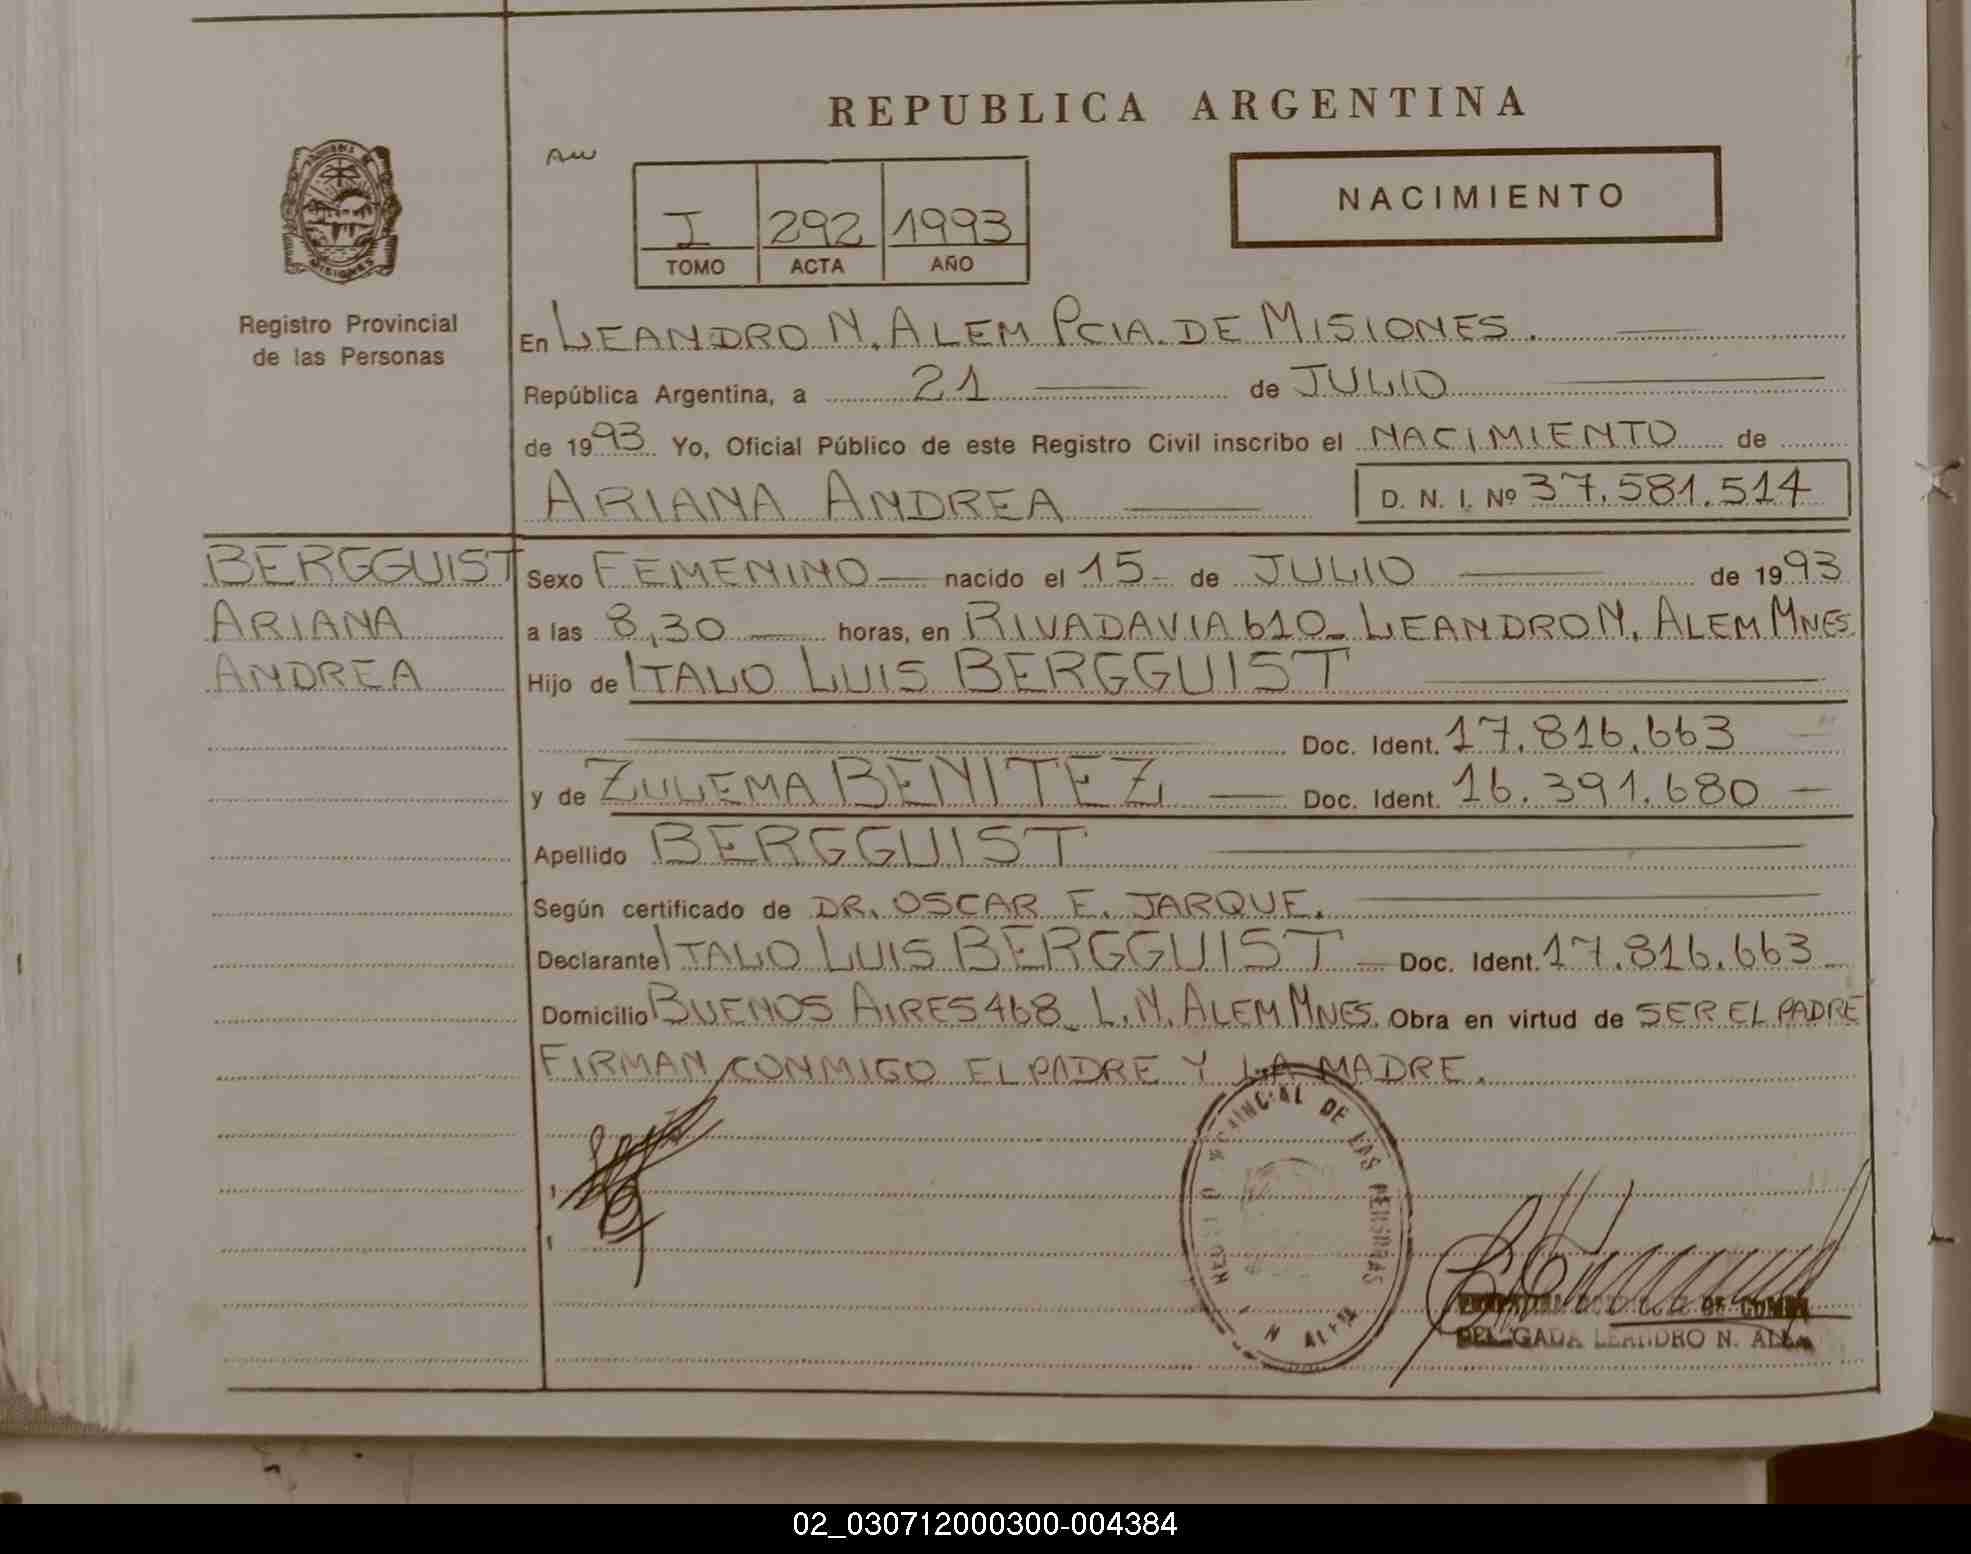 REPUBLICA ARGENTINA
NACIMIENTO
I 292 1993
TOMO ACTA AÑO
MISIONES
Registro Provincial
de las Personas
En LEANDRO N. ALEM PCIA. DE MISIONES.
República Argentina, a 21 de JULIO
de 1993 Yo, Oficial Público de este Registro Civil inscribo el NACIMIENTO de
ARIANA ANDREA D. N. I. Nº 37.581.514
BERGGUIST
ARIANA
ANDREA
Sexo FEMENINO nacido el 15 de JULIO de 1993
a las 8,30 horas, en RIVADAVIA 610_ LEANDRO N. ALEM MNES.
Hijo de ITALO LUIS BERGGUIST
Doc. Ident. 17.816.663
y de ZULEMA BENITEZ Doc. Ident. 16.391.680
Apellido BERGGUIST
Según certificado de DR. OSCAR E. JARQUE.
Declarante ITALO LUIS BERGGUIST Doc. Ident. 17.816.663
Domicilio BUENOS AIRES 468_ L.N. ALEM MNES. Obra en virtud de SER EL PADRE
FIRMAN CONMIGO EL PADRE Y LA MADRE.
DE LAS PERSONAS
N ALEM
DE
DELEGADA LEANDRO N. ALEM
02_030712000300-004384